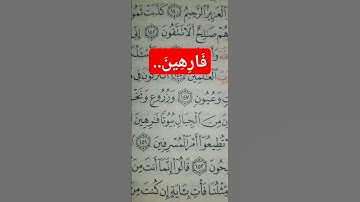 الْعَزِيزُ الرَّحِيمُ ١٤٠ كَذَّبَتْ ثَمُو
هُمْ صَٰلِحٌ أَلَا تَتَّقُونَ ١٤٢ إِنِّى
فَارِهِينَ..
الْعَٰلَمِينَ ١٤٥ أَتُتْرَكُونَ فِى
تٍ وَعُيُونٍ ١٤٧ وَزُرُوعٍ وَنَخْ
نَ مِنَ الْجِبَالِ بُيُوتًا فَٰرِهِينَ
تُطِيعُوٓا۟ أَمْرَ الْمُسْرِفِينَ ١٥١
لِحُونَ ١٥٢ قَالُوٓا۟ إِنَّمَآ أَنتَ مِنَ
مِّثْلُنَا فَأْتِ بِـَٔايَةٍ إِن كُنتَ مِنَ